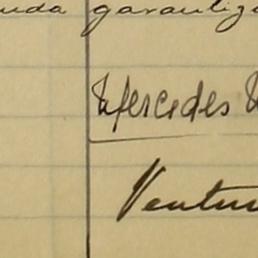 uda garantiz
Mercedes
Ventu